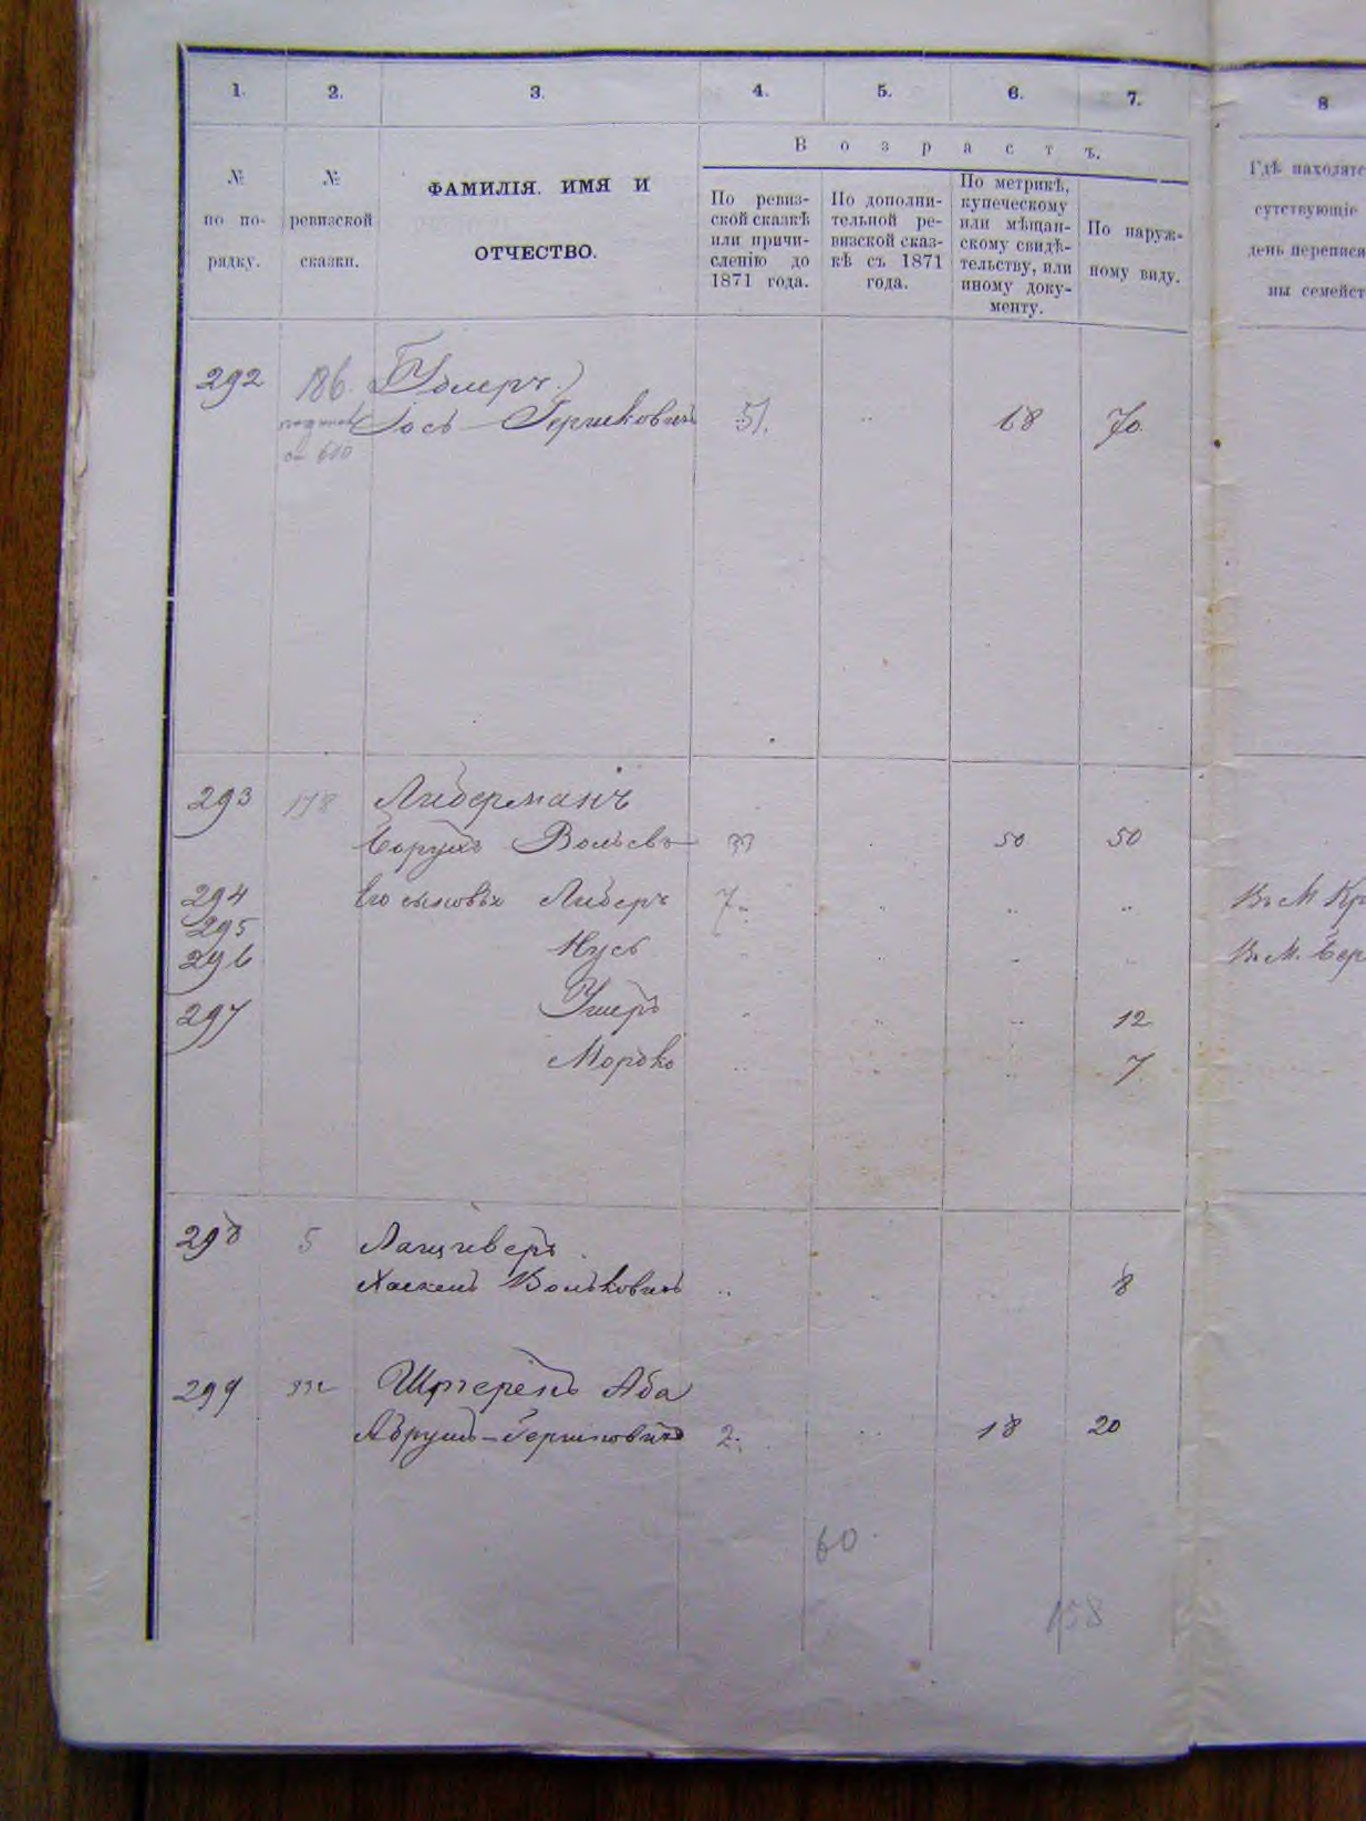 1. 2. 3. 4. 5. 6. 7. 8
В о з р а с т ъ.
№
по по-
рядку.
№
ревизской
сказки.
ФАМИЛІЯ. ИМЯ И
ОТЧЕСТВО.
По ревиз-
ской сказкѣ
или причи-
сленію до
1871 года.
По дополни-
тельной ре-
визской сказ-
кѣ съ 1871
года.
По метрикѣ,
купеческому
или мѣщан-
скому свидѣ-
тельству, или
иному доку-
менту.
По наруж-
ному виду.
Гдѣ находятс
сутствующіе
день переписи
ны семейст
292 186.
Іось Гершковичъ 51. 68 70
610
293 178 Либерманъ
Борухъ Вольевъ 33 50 50
294 Его сыновья Либеръ 7 Въ М Кр
295
296 Нусь Въ М. Бер
297 Ушеръ 12
Мордко 7
298 5
Хаскель Вольковичъ 8
299 Аба
Аврумъ-Гершковичъ 2 18 20
60
158